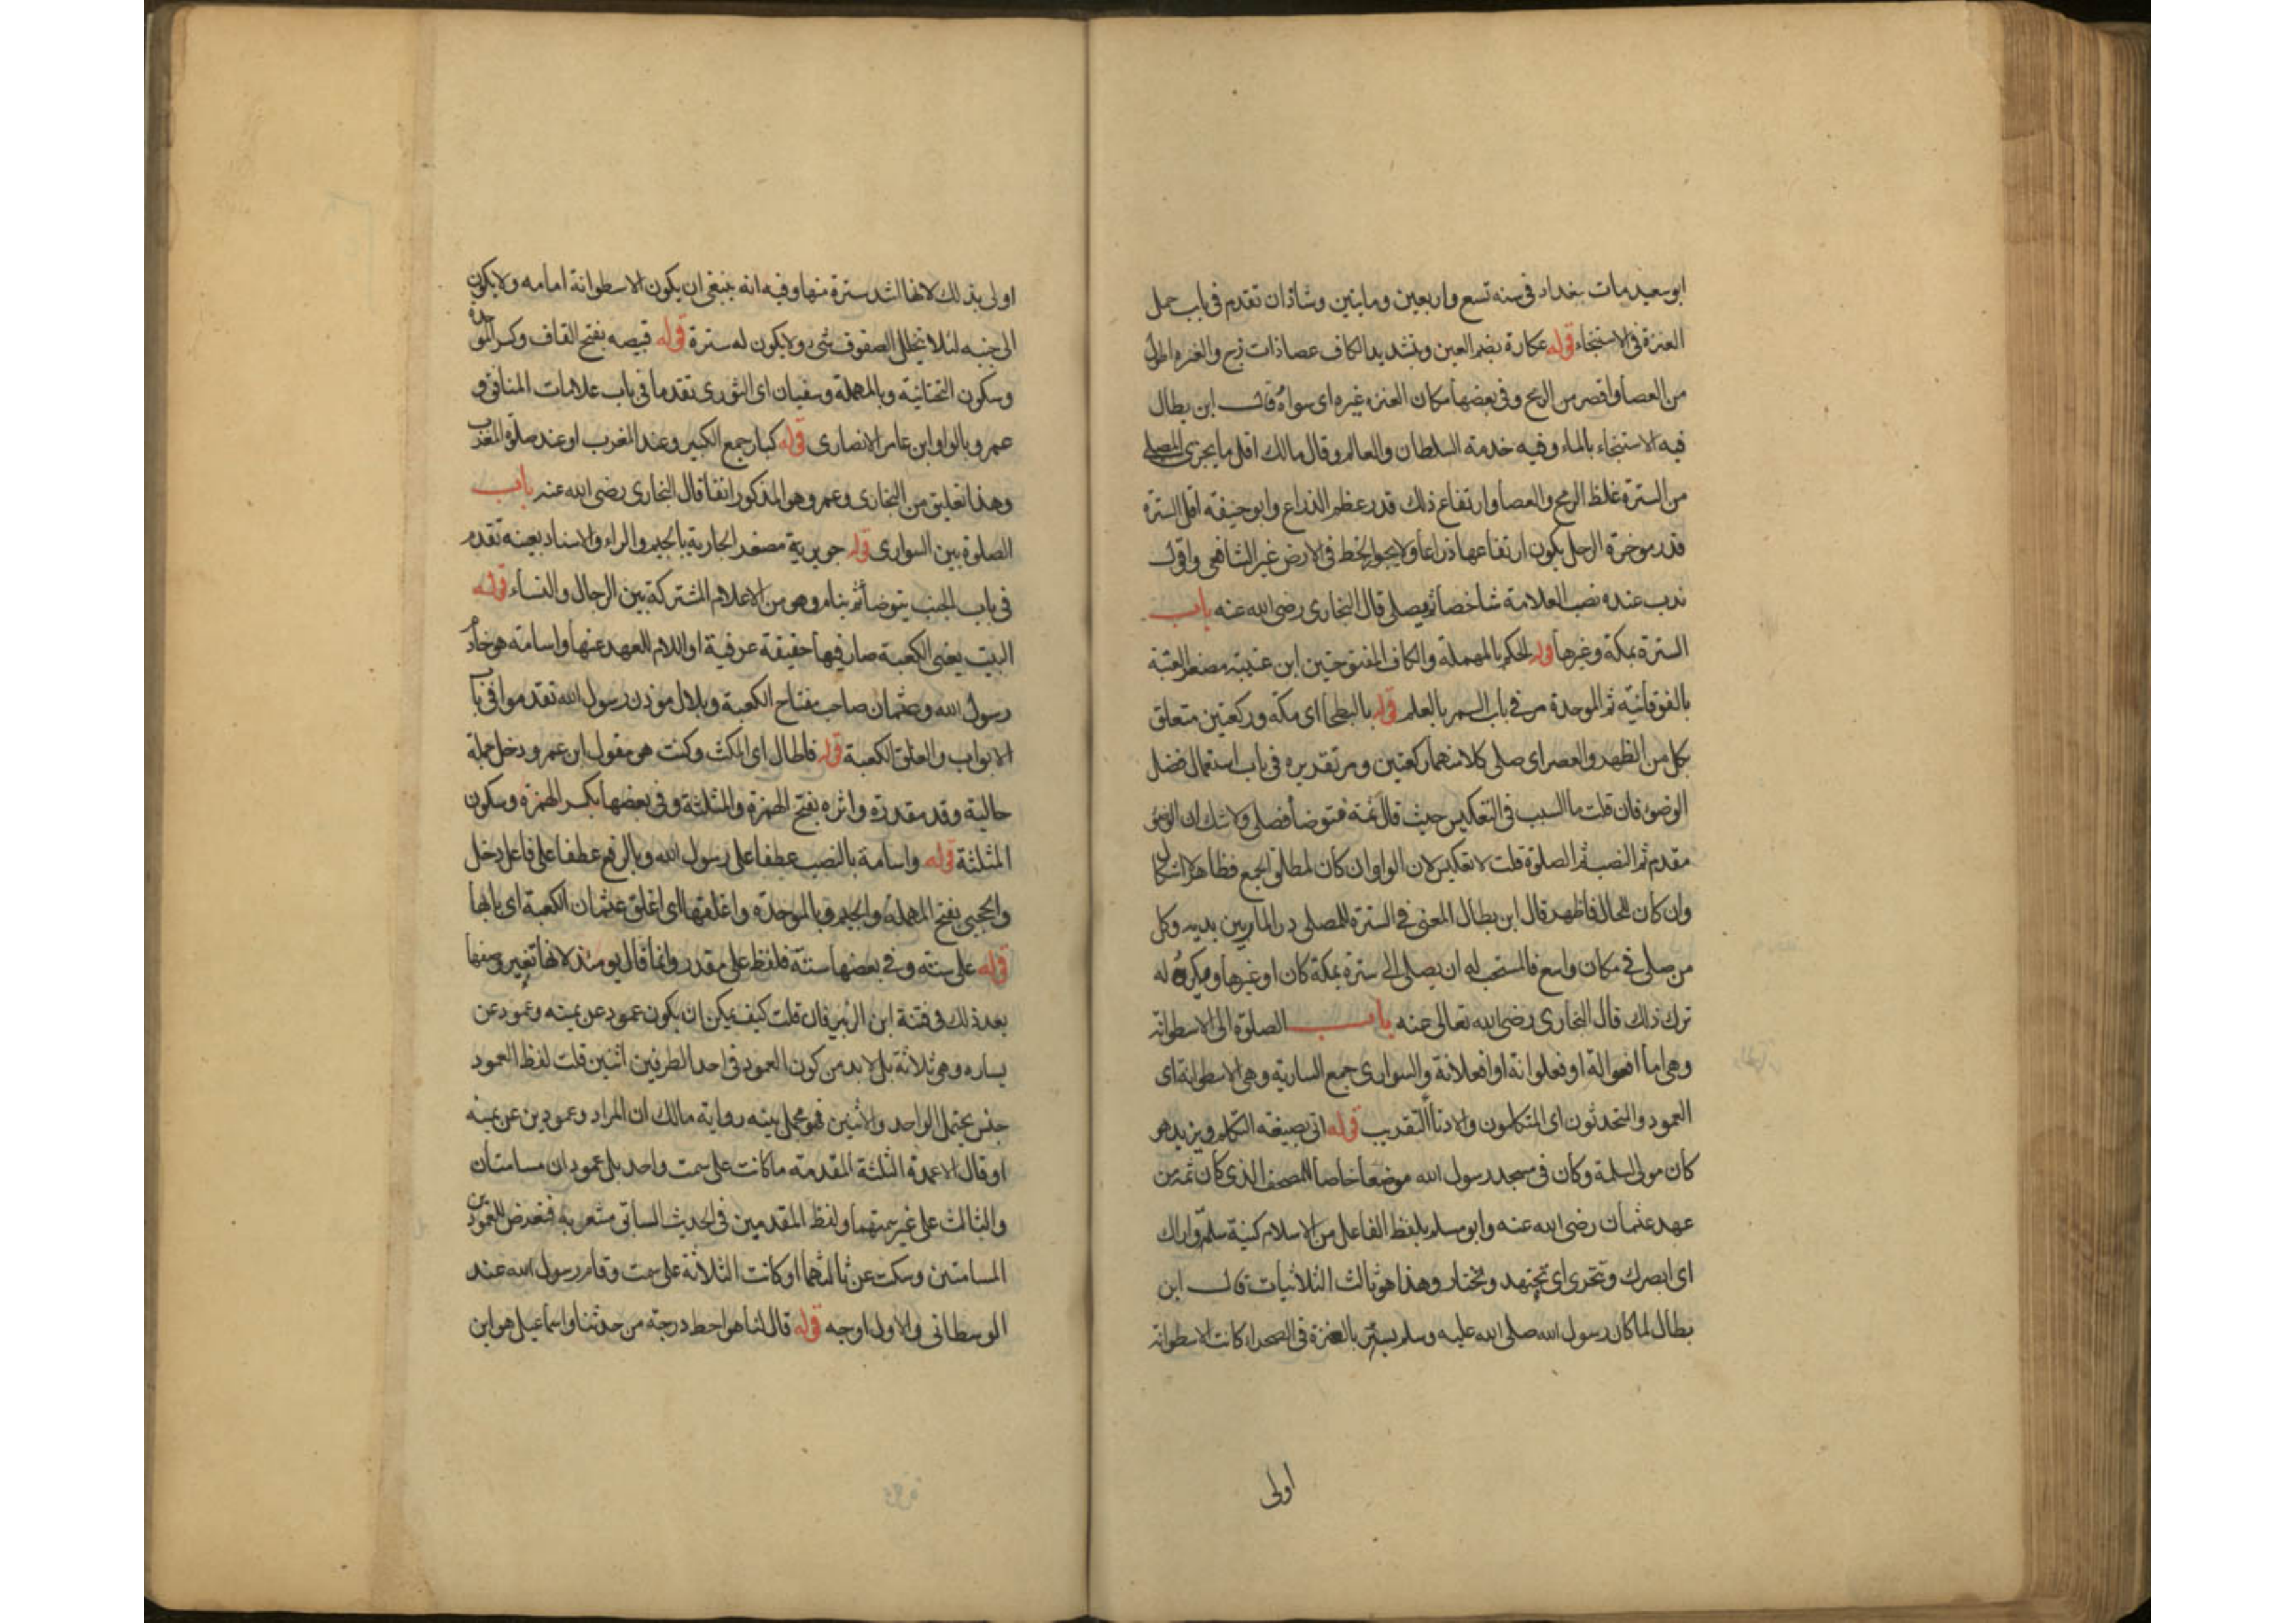 ابو سعيد مات ببغداد فى سنه تسع واربعين ومايتين وشاذان تقدم فى باب حمل
العنزة فى الاستنجاء قوله عكازة بضم العين وبتشديد الكاف عصا ذات زج والعنزه اطول
من العصا واقصر من الرمح وفى بعضها مكان العنزه غيره اى سواه قال ابن بطال
فيه الاستنجاء بالماء وفيه خدمة السلطان والعالم وقال مالك اقل ما يجزى المصلى
من السترة غلظ الرمح والعصا وارتفاع ذلك قدر عظم الذراع وابو حنيفه اقل السترة
قدر موخرة الرحل يكون ارتفاعها ذراعا ولا يجوز الخط فى الارض غير الشافعى واقول
ندب عنده نصب العلامة شاخصا ثم يصلى قال البخارى رضى الله عنه باب
السترة بمكة وغيرها قوله الحكم بالمهملة والكاف المفتوحتين ابن عتيبة مصغر العتبة
بالفوقانيه ثم الموحدة مر فى باب السمر بالعلم قوله بالبطحا اى مكه وركعتين متعلق
بكل من الظهر والعصر اى صلى كلا منهما ركعتين ومر تقديره فى باب استعمال فضل
الوضوء فان قلت ما السبب فى التعكيس حيث قال ثمة فتوضأ فصلى ولا شك ان الوضوء
مقدم ثم النصب ثم الصلوة قلت لا تعكيس لان الواو ان كان لمطلق الجمع فظاهر لا اشكال
وان كان للحال فاظهر قال ابن بطال المعنى فى السترة للمصلى درء المار بين يديه وكل
من صلى فى مكان واسع فالمستحب له ان يصلى الى سترة بمكة كان او غيرها ويكره له
ترك ذلك قال البخارى رضى الله تعالى عنه باب الصلوة الى الاسطوانه
وهى اما افعوالة او فعلوانة او افعلانة والسوارى جمع السارية وهى الاسطوانة اى
العمود والمتحدثون اى المتكلمون والادنا التقريب قوله اتى بصيغه التكلم ويزيد هو
كان مولى لسلمة وكان فى مسجد رسول الله موضعا خاصا للمصحف الذى كان ثمه من
عهد عثمان رضى الله عنه وابو مسلم بلفظ الفاعل من الاسلام كنية سلمة واراك
اى ابصرك وتتحرى اى تجتهد وتختار وهذا هو ثالث الثلاثيات قال ابن
بطال لما كان رسول الله صلى الله عليه وسلم يستتر بالعنزة فى الصحرا كانت الاسطوانه
اولى
اولى بذلك لانها اشد سترة منها وفيه انه ينبغى ان يكون الاسطوانة امامه ولا يكون
الى جنبه لئلا يتخلل الصفوف شى ولا يكون له سترة قوله قبيصه بفتح القاف وكسر الموحدة
وسكون التحتانية وبالمهملة وسفيان اى الثورى تقدما فى باب علامات المنافق و
عمرو بالواو ابن عامر الانصارى قوله كبار جمع الكبير وعند المغرب او عند صلوة المغرب
وهذا تعليق من البخارى وعمرو هو المذكور انفا قال البخارى رضى الله عنه باب
الصلوة بين السوارى قوله جويرية مصغر الجارية بالجيم والراء والاسناد بعينه تقدم
فى باب الجنب يتوضأ ثم ينام وهو من الاعلام المشتركة بين الرجال والنساء قوله
البيت يعنى الكعبة صار فيها حقيقة عرفية او اللام للعهد عنها واسامة هو خادم
رسول الله وعثمان صاحب مفتاح الكعبة وبلال موذن رسول الله تقدموا فى باب
الابواب والغلق للكعبة قوله فاطال اى المكث وكنت هو مقول ابن عمر ودخل جملة
حالية وقد مقدرة واثره بفتح الهمزة والمثلثة وفى بعضها بكسر الهمزة وسكون
المثلثة قوله واسامة بالنصب عطفا على رسول الله وبالرفع عطفا على فاعل دخل
والحجبى بفتح المهملة والجيم وبالموحدة واغلقها اى اغلق عثمان الكعبة اى بابها
قوله على ستة وفى بعضها ستة فلفظ على مقدر وانما قال يومئذ لانها تغير وضعها
بعد ذلك فى فتنة ابن الزبير فان قلت كيف يمكن ان يكون عمود عن يمينه وعمود عن
يساره وهى ثلاثة بل لا بد من كون العمود فى احد الطرفين اثنين قلت لفظ العمود
جنس يحتمل الواحد والاثنين فهو مجمل بينه رواية مالك ان المراد وعمودين عن يمينه
او قال الاعمدة الثلثة المقدمه ما كانت على سمت واحد بل عمودان مسامتان
والثالث على غير سمتهما ولفظ المقدمين فى الحديث السابق مشعر به فتعرض للعمودين
المسامتين وسكت عن ثالثهما او كانت الثلاثة على سمت وقام رسول الله عند
الوسطانى والاول اوجه قوله قال لنا هو احط درجة من حدثنا واسماعيل هو ابن